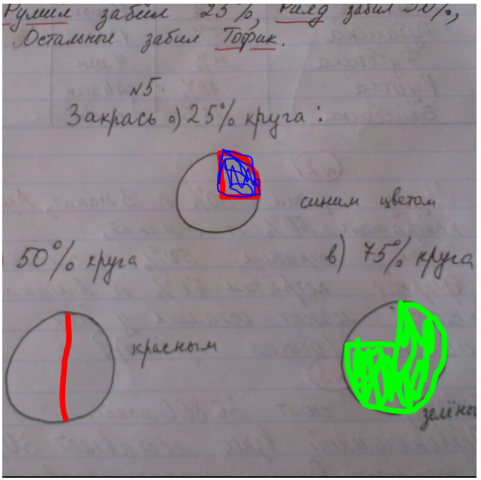 Рулшен забил 25%, Рилд забил 50%,
Остальные забил Тофик.
№5.
Закрась а) 25% круга:
синим цветом
50% круга
в) 75% круга
красным
зелёны